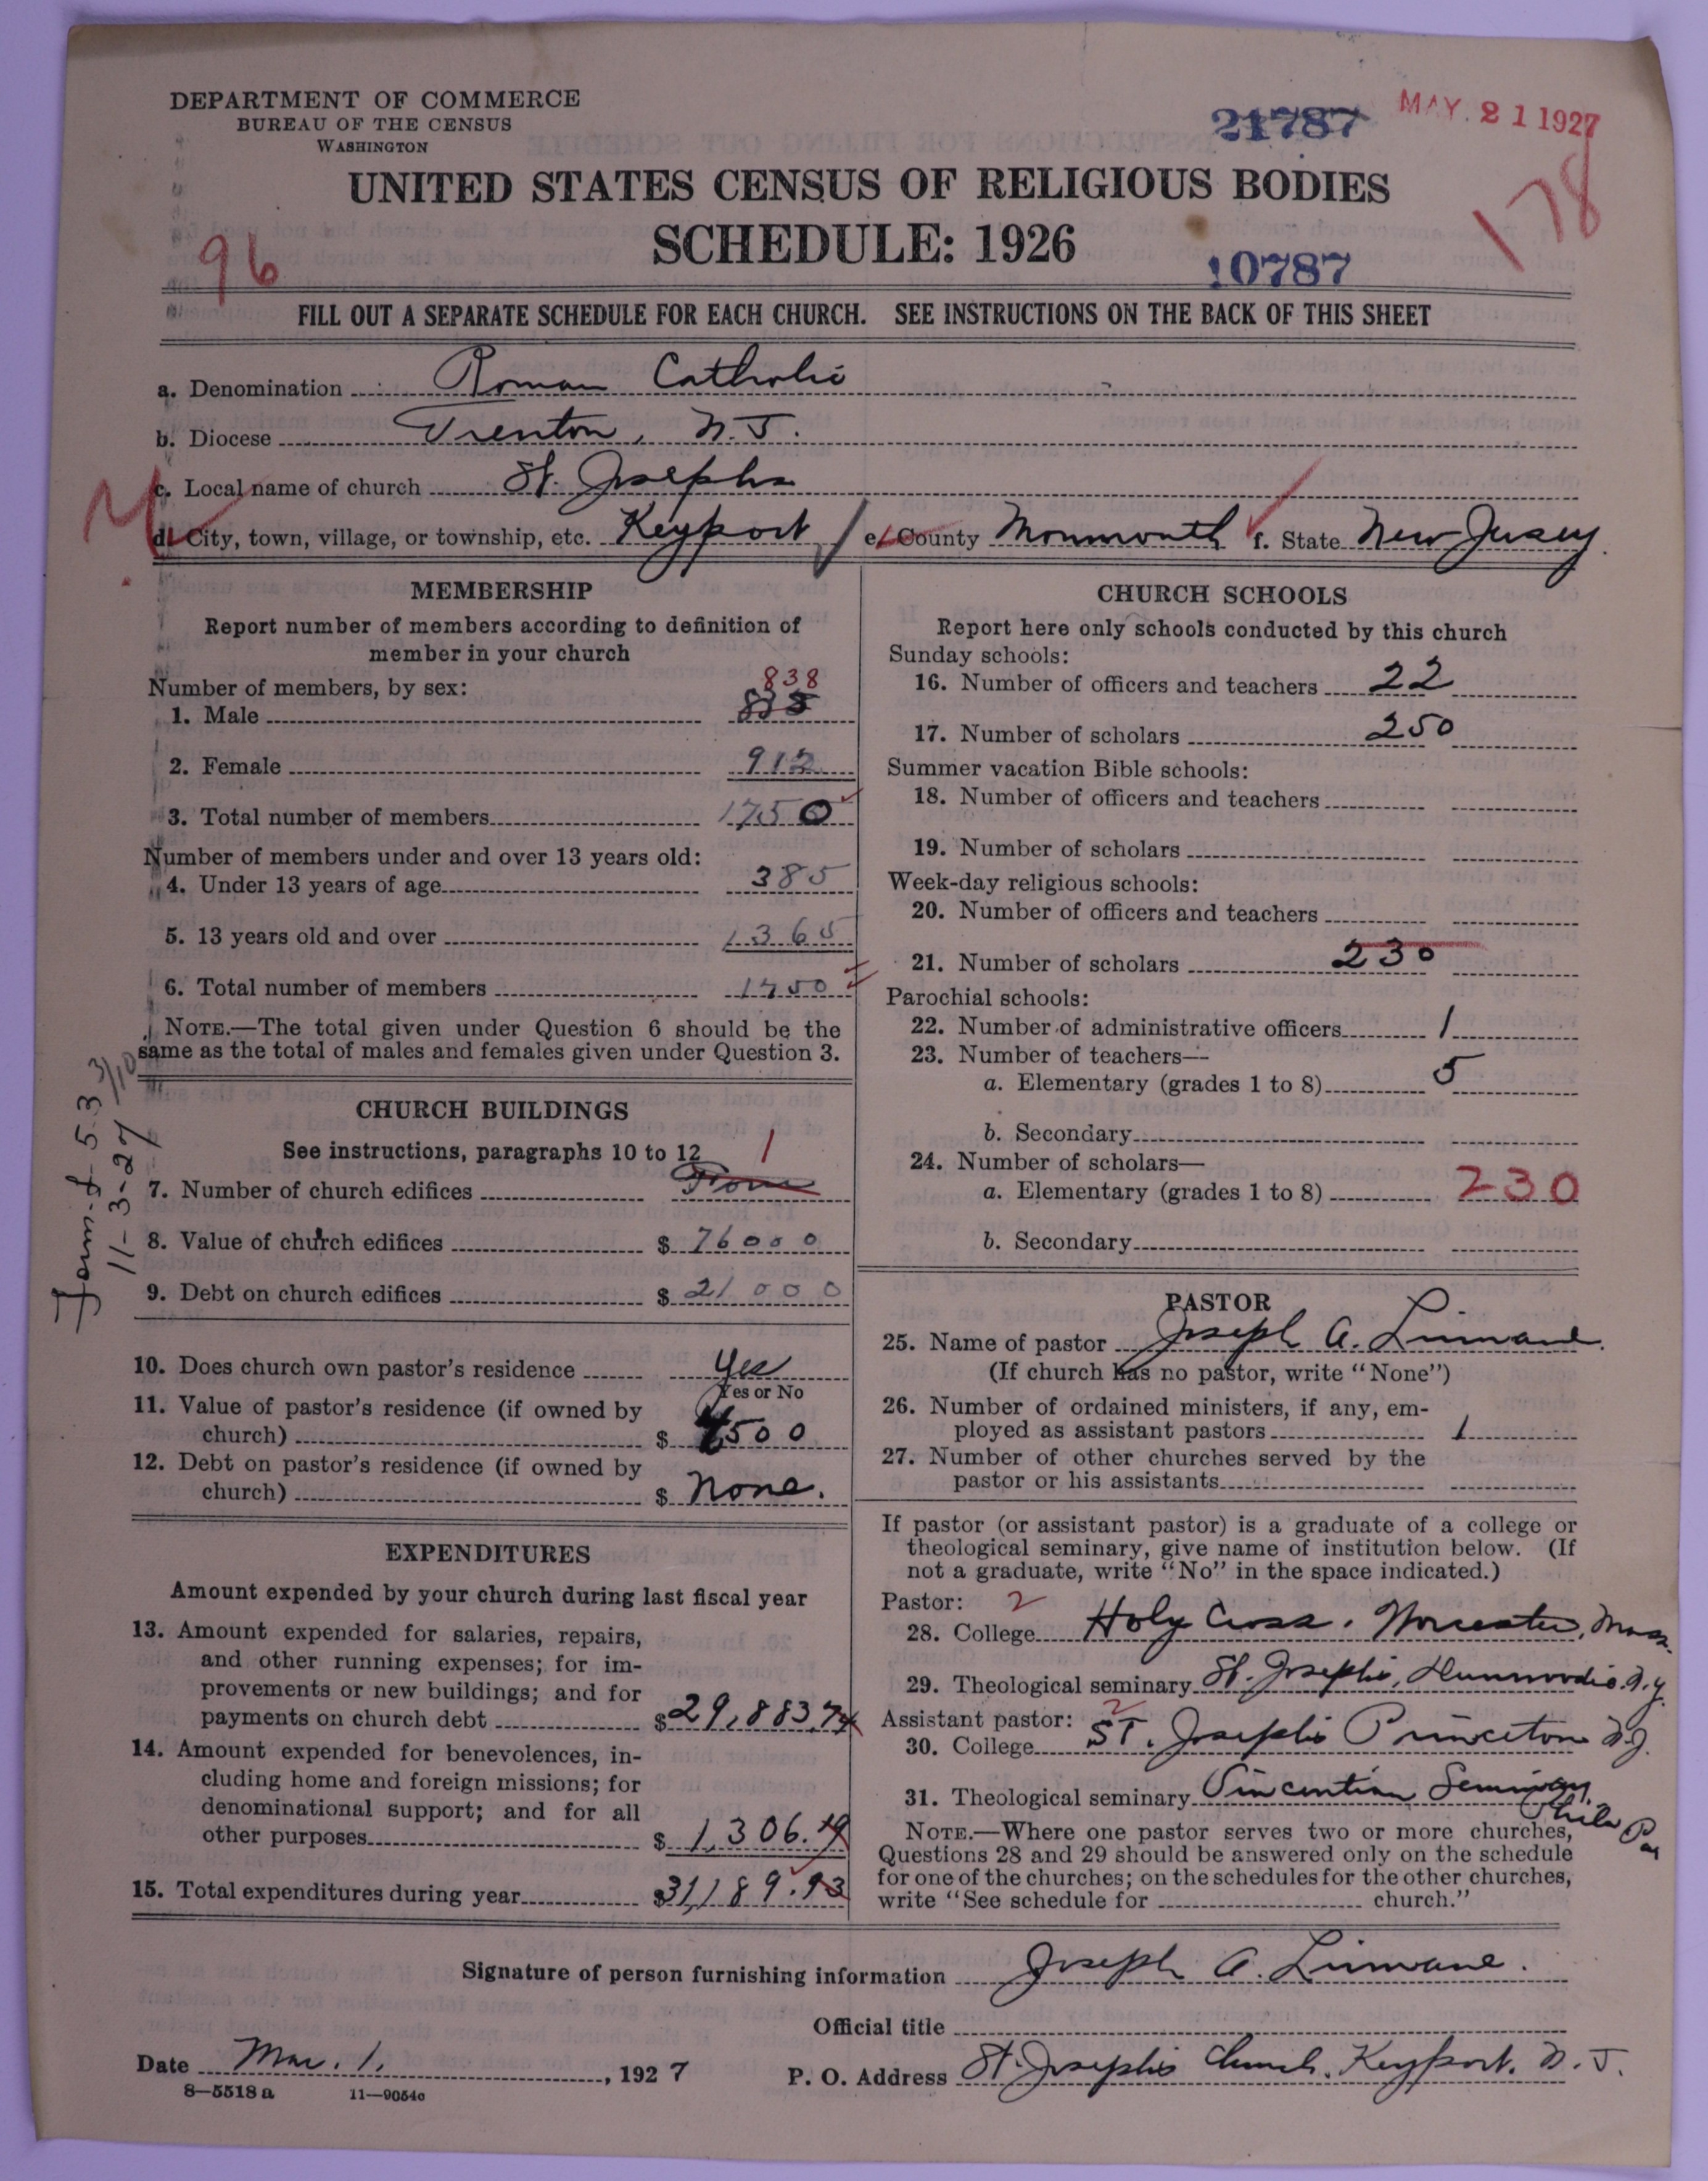 DEPARTMENT OF COMMERCE
BUREAU OF THE CENSUS
WASHINGTON
21787
MAY. 21 1927
178
UNITED STATES CENSUS OF RELIGIOUS BODIES
SCHEDULE: 1926
96
10787
FILL OUT A SEPARATE SCHEDULE FOR EACH CHURCH. SEE INSTRUCTIONS ON THE BACK OF THIS SHEET
a. Denomination Roman Catholic
b. Diocese Trenton, N.J.
c. Local name of church St. Josephs
d. City, town, village, or township, etc. Keyport / e. County Monmouth f. State New Jersey
MEMBERSHIP
Report number of members according to definition of
member in your church
Number of members, by sex:
838
1. Male
2. Female 912
3. Total number of members 1750
Number of members under and over 13 years old:
4. Under 13 years of age 385
5. 13 years old and over 1365
6. Total number of members 1750
NOTE.—The total given under Question 6 should be the
same as the total of males and females given under Question 3.
CHURCH BUILDINGS
See instructions, paragraphs 10 to 12
1
7. Number of church edifices
8. Value of church edifices $ 76000
9. Debt on church edifices $ 21000
10. Does church own pastor's residence Yes
Yes or No
11. Value of pastor's residence (if owned by
church) $ 500
12. Debt on pastor's residence (if owned by
church) $ None.
EXPENDITURES
Amount expended by your church during last fiscal year
13. Amount expended for salaries, repairs,
and other running expenses; for im-
provements or new buildings; and for
payments on church debt $ 29,883.74
14. Amount expended for benevolences, in-
cluding home and foreign missions; for
denominational support; and for all
other purposes $ 1,306.19
15. Total expenditures during year $ 31,189.93
11-3-27
CHURCH SCHOOLS
Report here only schools conducted by this church
Sunday schools:
16. Number of officers and teachers 22
17. Number of scholars 250
Summer vacation Bible schools:
18. Number of officers and teachers
19. Number of scholars
Week-day religious schools:
20. Number of officers and teachers
21. Number of scholars 230
Parochial schools:
22. Number of administrative officers 1
23. Number of teachers—
a. Elementary (grades 1 to 8) 5
b. Secondary
24. Number of scholars—
a. Elementary (grades 1 to 8) 230
b. Secondary
PASTOR
25. Name of pastor Joseph A. Linnane.
(If church has no pastor, write "None")
26. Number of ordained ministers, if any, em-
ployed as assistant pastors 1
27. Number of other churches served by the
pastor or his assistants
If pastor (or assistant pastor) is a graduate of a college or
theological seminary, give name of institution below. (If
not a graduate, write "No" in the space indicated.)
Pastor: 2
28. College Holy Cross, Worcester, Mass.
29. Theological seminary St. Josephs, Dunwoodie. N.Y.
Assistant pastor: 2
30. College ST. Josephs Princeton N.J.
31. Theological seminary Vincentian Seminary,
Phila Pa
NOTE.—Where one pastor serves two or more churches,
Questions 28 and 29 should be answered only on the schedule
for one of the churches; on the schedules for the other churches,
write "See schedule for church."
Signature of person furnishing information Joseph A. Linnane.
Official title
Date Mar. 1, 1927
P. O. Address St. Josephs Church, Keyport, N.J.
8—5518 a 11—9054c